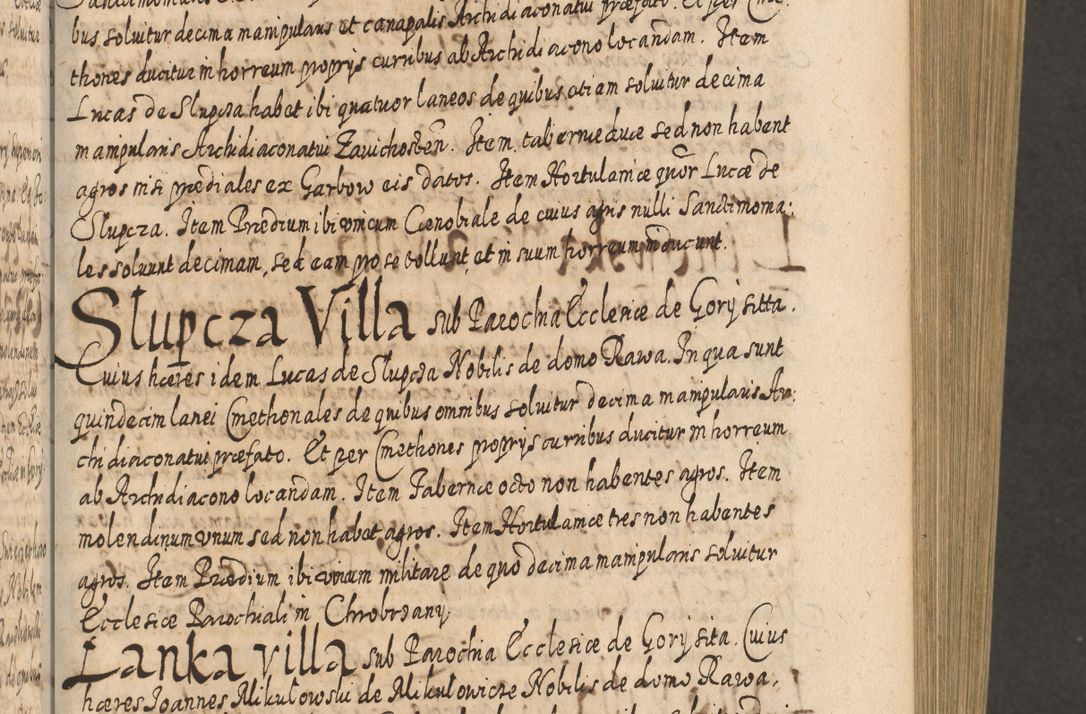 bus soluitur decima manipularis et canapalis Archidiaconatui præfato. Et per Cme:
thones ducitur in horreum proprijs curribus ab Archidiacono locandam. Item
Lucas de Slupcza habet ibi quatuor laneos de quibus etiam soluitur decima
manipularis Archidiaconatui Zauichosten. Item tabernæ duæ sed non habent
agros nisi prædiales ex Garbow eis datos. Item Hortulaniæ quõr Lucæ de
Slupcza. Item Prædium ibi vnicum Cœnobiale de cuius agris nulli Sanctimoma:
les soluunt decimam, sed eam pro se tollunt, et in suum horreum inducunt.
Slupcza Villa sub Parochia Ecclesiæ de Gorij sitta.
Cuius hæres idem Lucas de Slupcza Nobilis de domo Rawa. In qua sunt
quindecim lanei Cmethonales de quibus omnibus soluitur decima manipularis Ar:
chidiaconatui præfato. Et per Cmethones proprijs curribus ducitur in horreum
ab Archidiacono locandam. Item Tabernæ octo non habentes agros. Item
molendinum vnum sed non habet agros. Item Hortulamæ tres non habentes
agros. Item Prædium ibi vnicum militare de quo decima manipularis soluitur
Ecclesiæ Parochiali in Chrobrzany
Lanka villa sub Parochia Ecclesiæ de Gorij sita. Cuius
hæres Joannes Mikulowski de Mikulowicze Nobilis de domo Rawa.